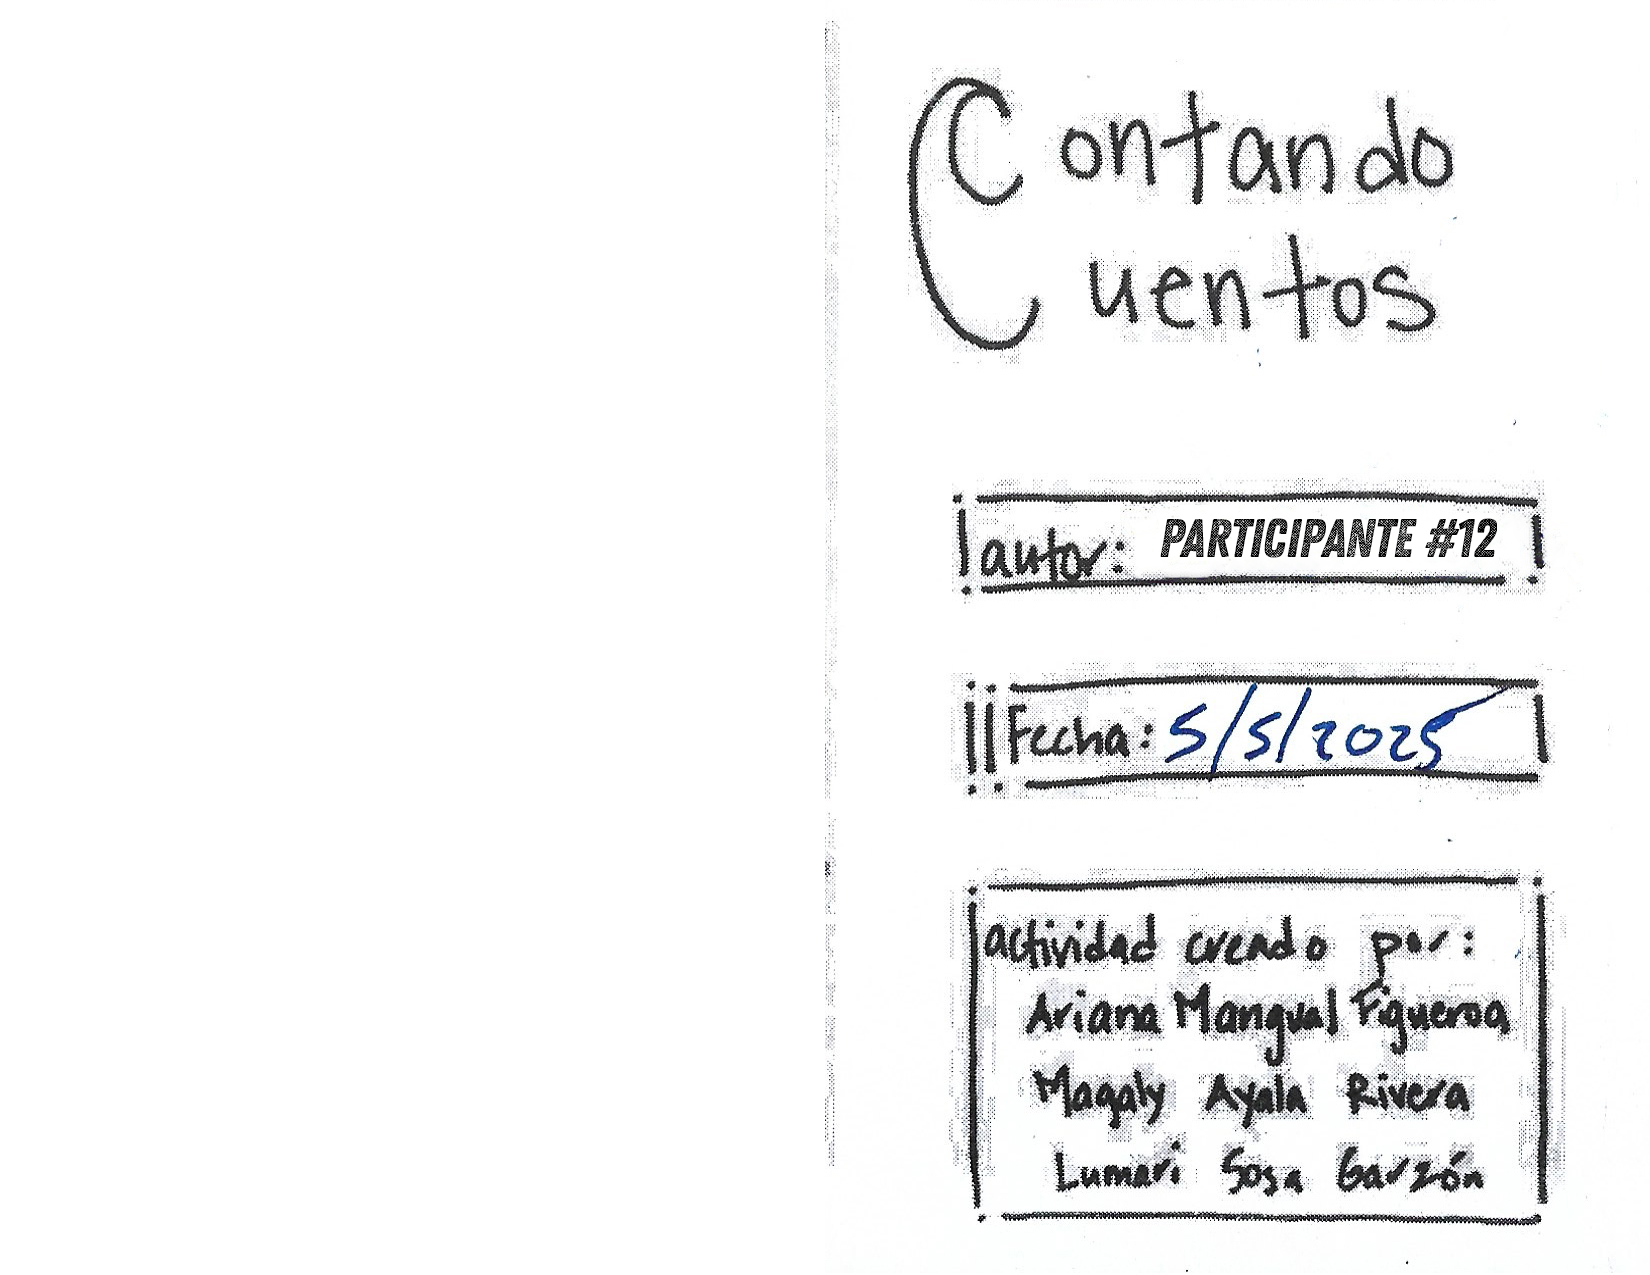 Contando
Cuentos
autor: PARTICIPANTE #12
Fecha: 5/5/2025
actividad creado por:
Ariana Mangual Figueroa
Magaly Ayala Rivera
Lumari Sosa Garzón